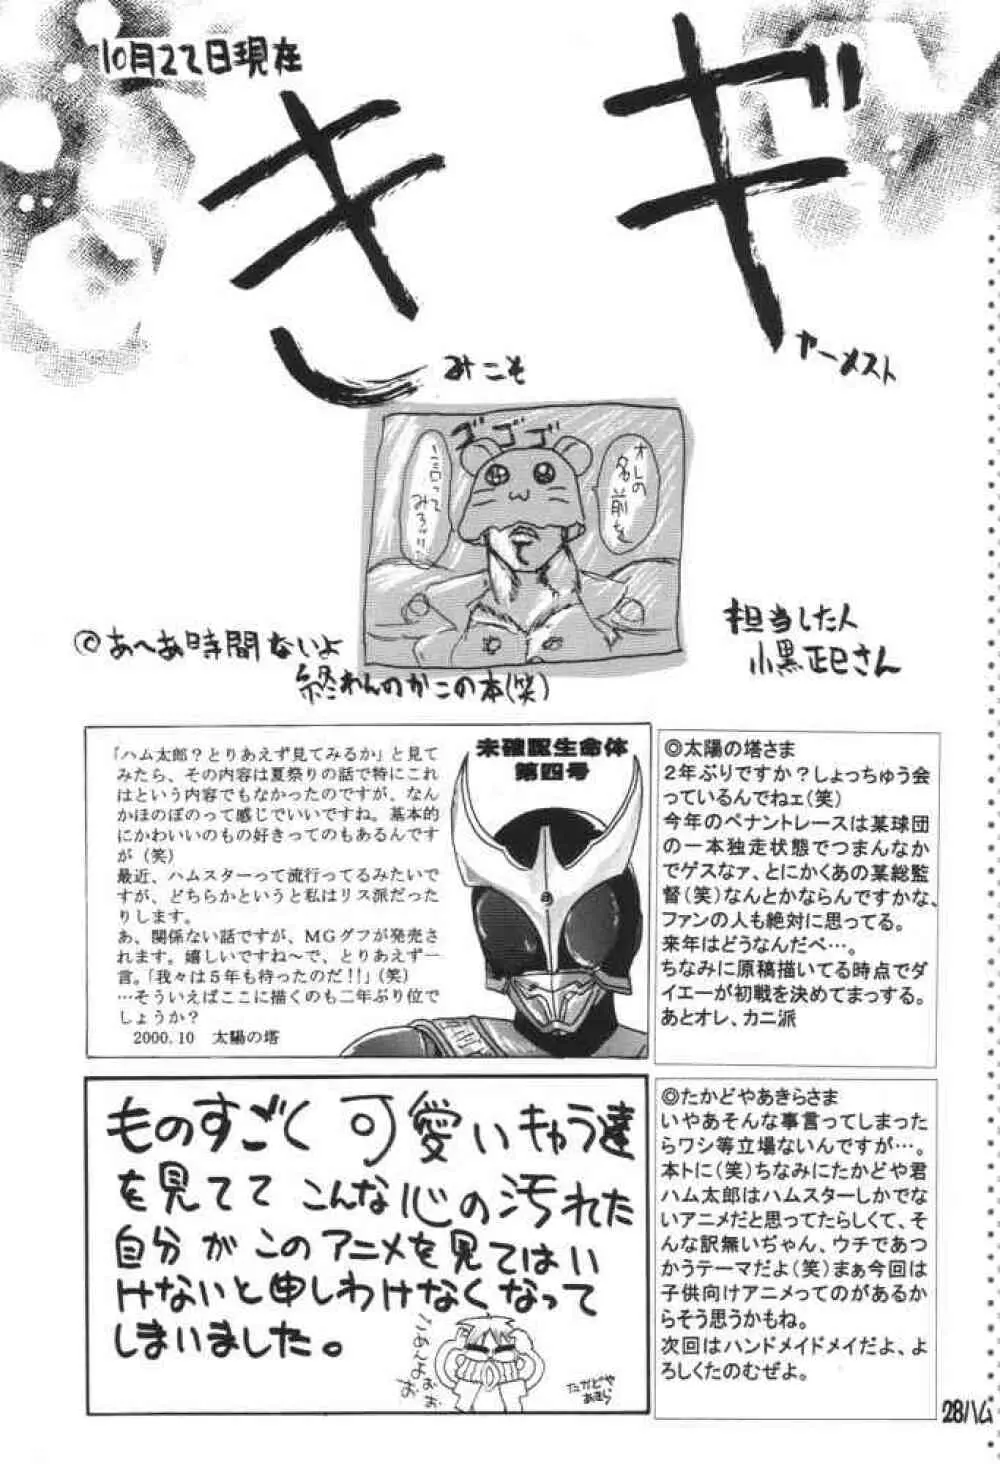 10月22日現在
ギ
ャーメスト
き
みこそ
ゴゴゴ
オレの
名前を
言って
みろ!!
担当した人
小黒正巳さん
◎あ〜あ時間ないよ
終われんのかこの本(笑)
「ハム太郎？とりあえず見てみるか」と見て
みたら、その内容は夏祭りの話で特にこれ
はという内容でもなかったのですが、なん
かほのぼのって感じでいいですね。基本的
にかわいいのもの好きってのもあるんです
が（笑）
最近、ハムスターって流行ってるみたいで
すが、どちらかというと私はリス派だった
りします。
あ、関係ない話ですが、ＭＧグフが発売さ
れます。嬉しいですね〜で、とりあえず一
言。「我々は５年も待ったのだ!!」(笑)
…そういえばここに描くのも二年ぶり位で
しょうか？
2000.10　太陽の塔
未確認生命体
第四号
◎太陽の塔さま
２年ぶりですか？しょっちゅう会
っているんでねェ（笑）
今年のペナントレースは某球団
の一本独走状態でつまんなか
でゲスなァ、とにかくあの某総監
督（笑）なんとかならんですかな、
ファンの人も絶対に思ってる。
来年はどうなんだべ…。
ちなみに原稿描いてる時点でダ
イエーが初戦を決めてまっする。
あとオレ、カニ派
ものすごく可愛いキャラ達
を見てて こんな心の汚れた
自分がこのアニメを見てはい
けないと申しわけなくなって
しまいました。
たかどや
あきら
◎たかどやあきらさま
いやあそんな事言ってしまった
らワシ等立場ないんですが…。
本トに（笑）ちなみにたかどや君
ハム太郎はハムスターしかでな
いアニメだと思ってたらしくて、そ
んな訳無いぢゃん、ウチであつ
かうテーマだよ（笑）まぁ今回は
子供向けアニメってのがあるか
らそう思うかもね。
次回はハンドメイドメイだよ、よ
ろしくたのむぜよ。
28ハム